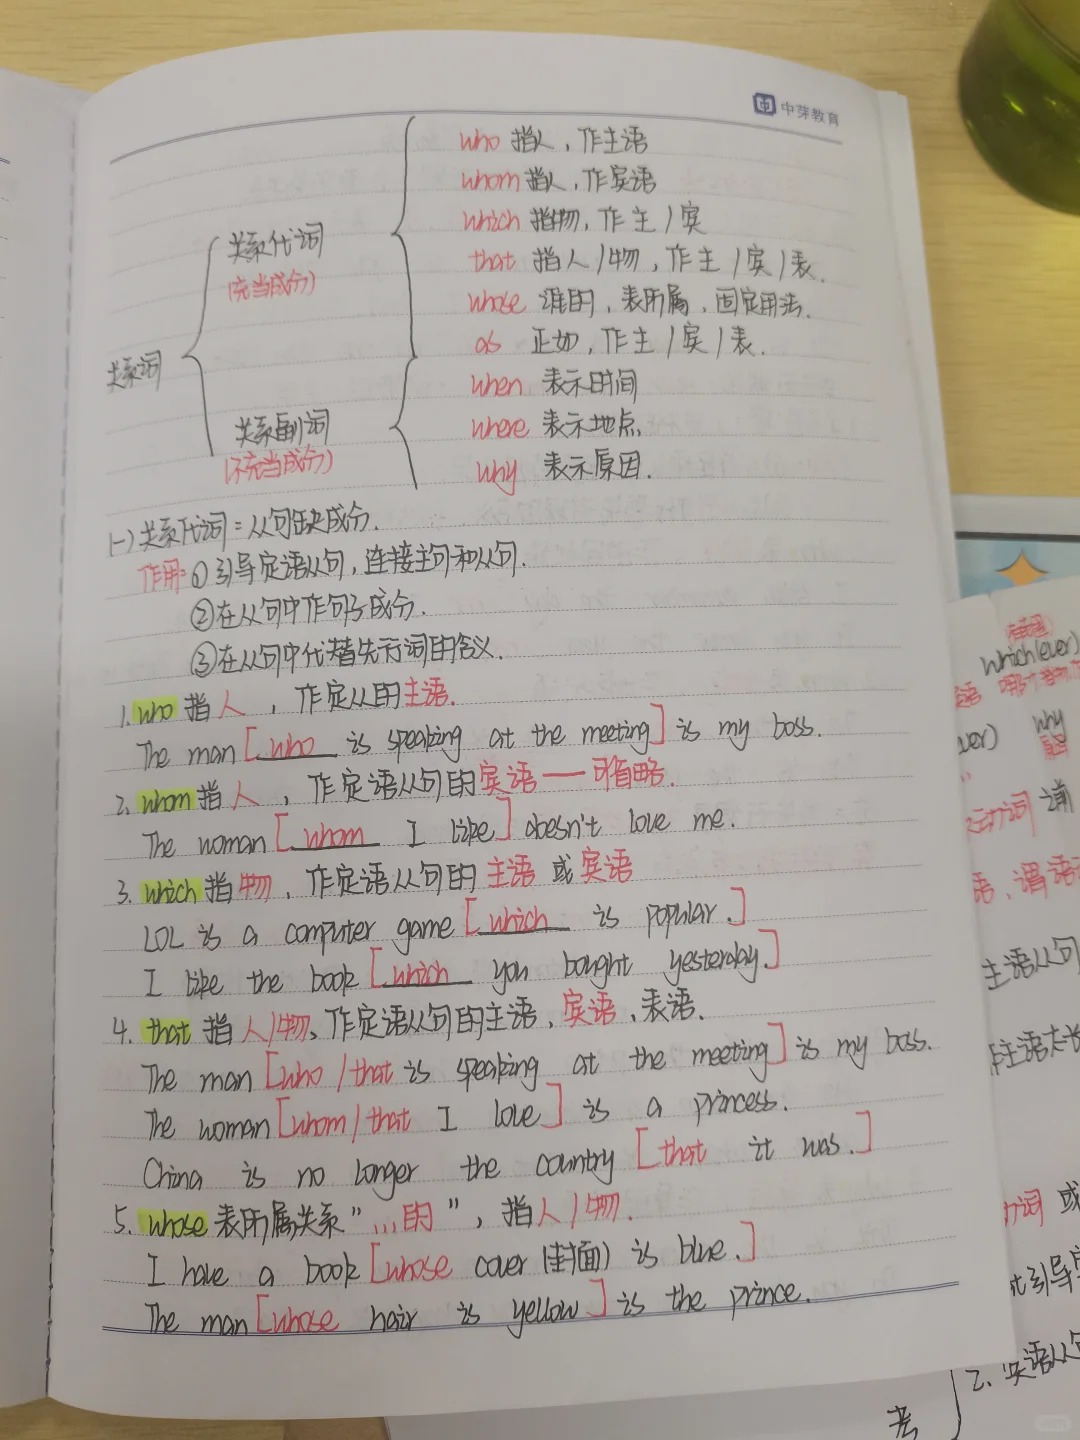 中芽教育
who 指人，作主语
whom 指人，作宾语
which 指物，作主/宾
that 指人/物，作主/宾/表.
whose 谁的，表所属，固定用法.
as 正如，作主/宾/表.
when 表示时间
where 表示地点
why 表示原因.
关系代词
(充当成分)
关系词
关系副词
(不充当成分)
(一)关系代词=从句缺成分.
作用: ①引导定语从句，连接主句和从句.
②在从句中作句子成分.
③在从句中代替先行词的含义.
1. who 指人，作定从的主语.
The man [who is speaking at the meeting] is my boss.
2. whom 指人，作定语从句的宾语——可省略.
The woman [whom I like] doesn't love me.
3. which 指物，作定语从句的主语或宾语
LOL is a computer game [which is popular.]
I like the book [which you bought yesterday.]
4. that 指人/物、作定语从句的主语、宾语、表语.
The man [who/that is speaking at the meeting] is my boss.
The woman [whom/that I love] is a princess.
China is no longer the country [that it was.]
5. whose 表所属关系"...的"，指人/物.
I have a book [whose cover(封面) is blue.]
The man [whose hair is yellow] is the prince.
which(ever)
ver) why
动词 请
语、谓语
主语从句
主语太长
动词 或
引导
2. 宾语从句